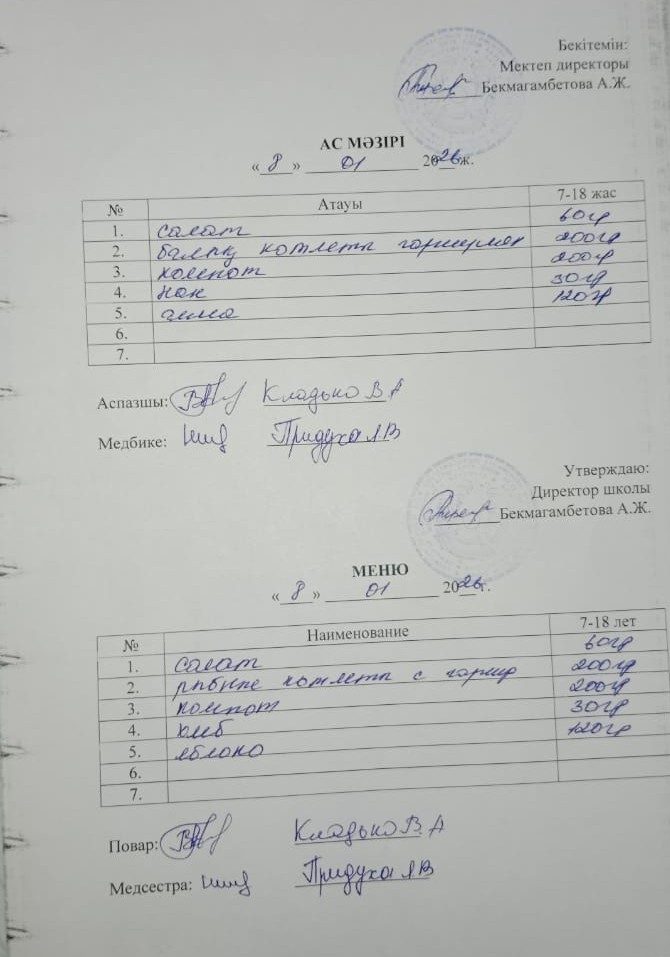 Бекітемін:
Мектеп директоры
Бекмагамбетова А.Ж.
АС МӘЗІРІ
« 8 » 01 2026 ж.
№ Атауы 7-18 жас
1. салат 60гр
2. балық котлеты гарнирмен 200гр
3. компот 200гр
4. нан 30гр
5. алма 120гр
6.
7.
Аспазшы: Кладько В А
Медбике: Придуха Я В
Утверждаю:
Директор школы
Бекмагамбетова А.Ж.
МЕНЮ
« 8 » 01 2026 г.
№ Наименование 7-18 лет
1. салат 60гр
2. рыбные котлеты с гарнир 200гр
3. компот 200гр
4. хлеб 30гр
5. яблоко 120гр
6.
7.
Повар: Кладько В А
Медсестра: Придуха Я В